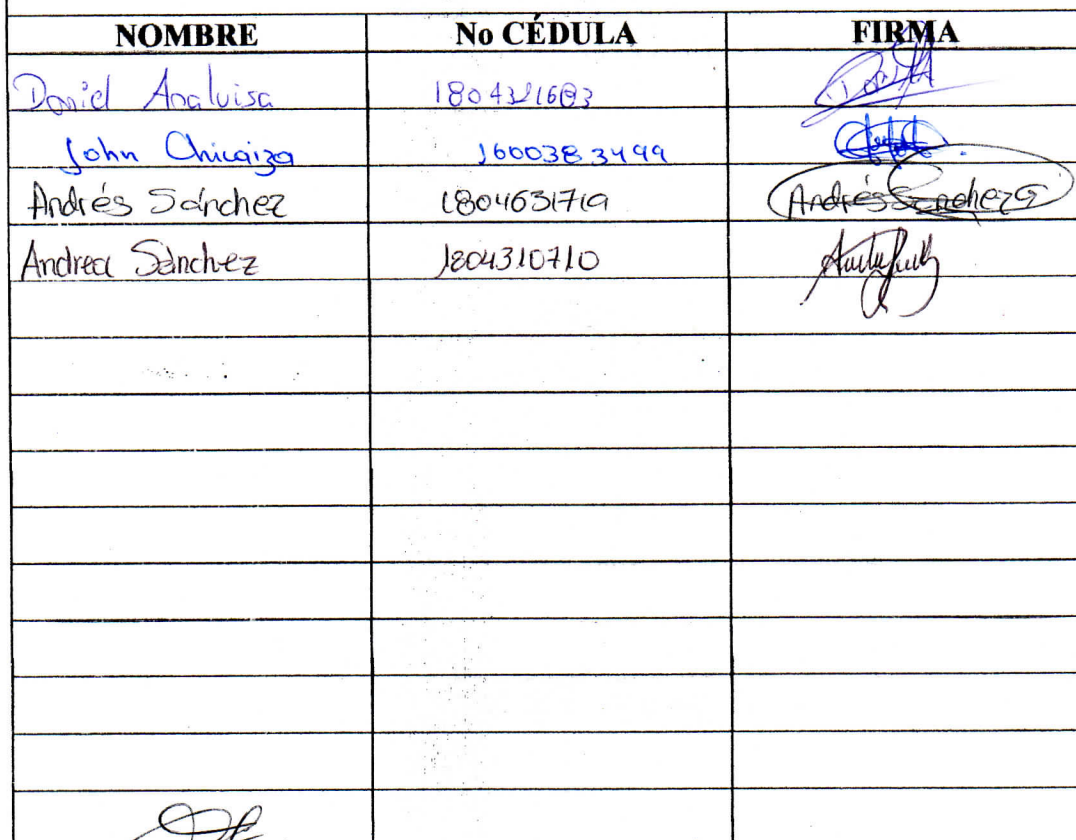 NOMBRE No CÉDULA FIRMA
Daniel Analuisa
John Chicaiza 1600383499
Andrés Sánchez 1804631719 Andrés Sánchez G
Andrea Sánchez 1804310710